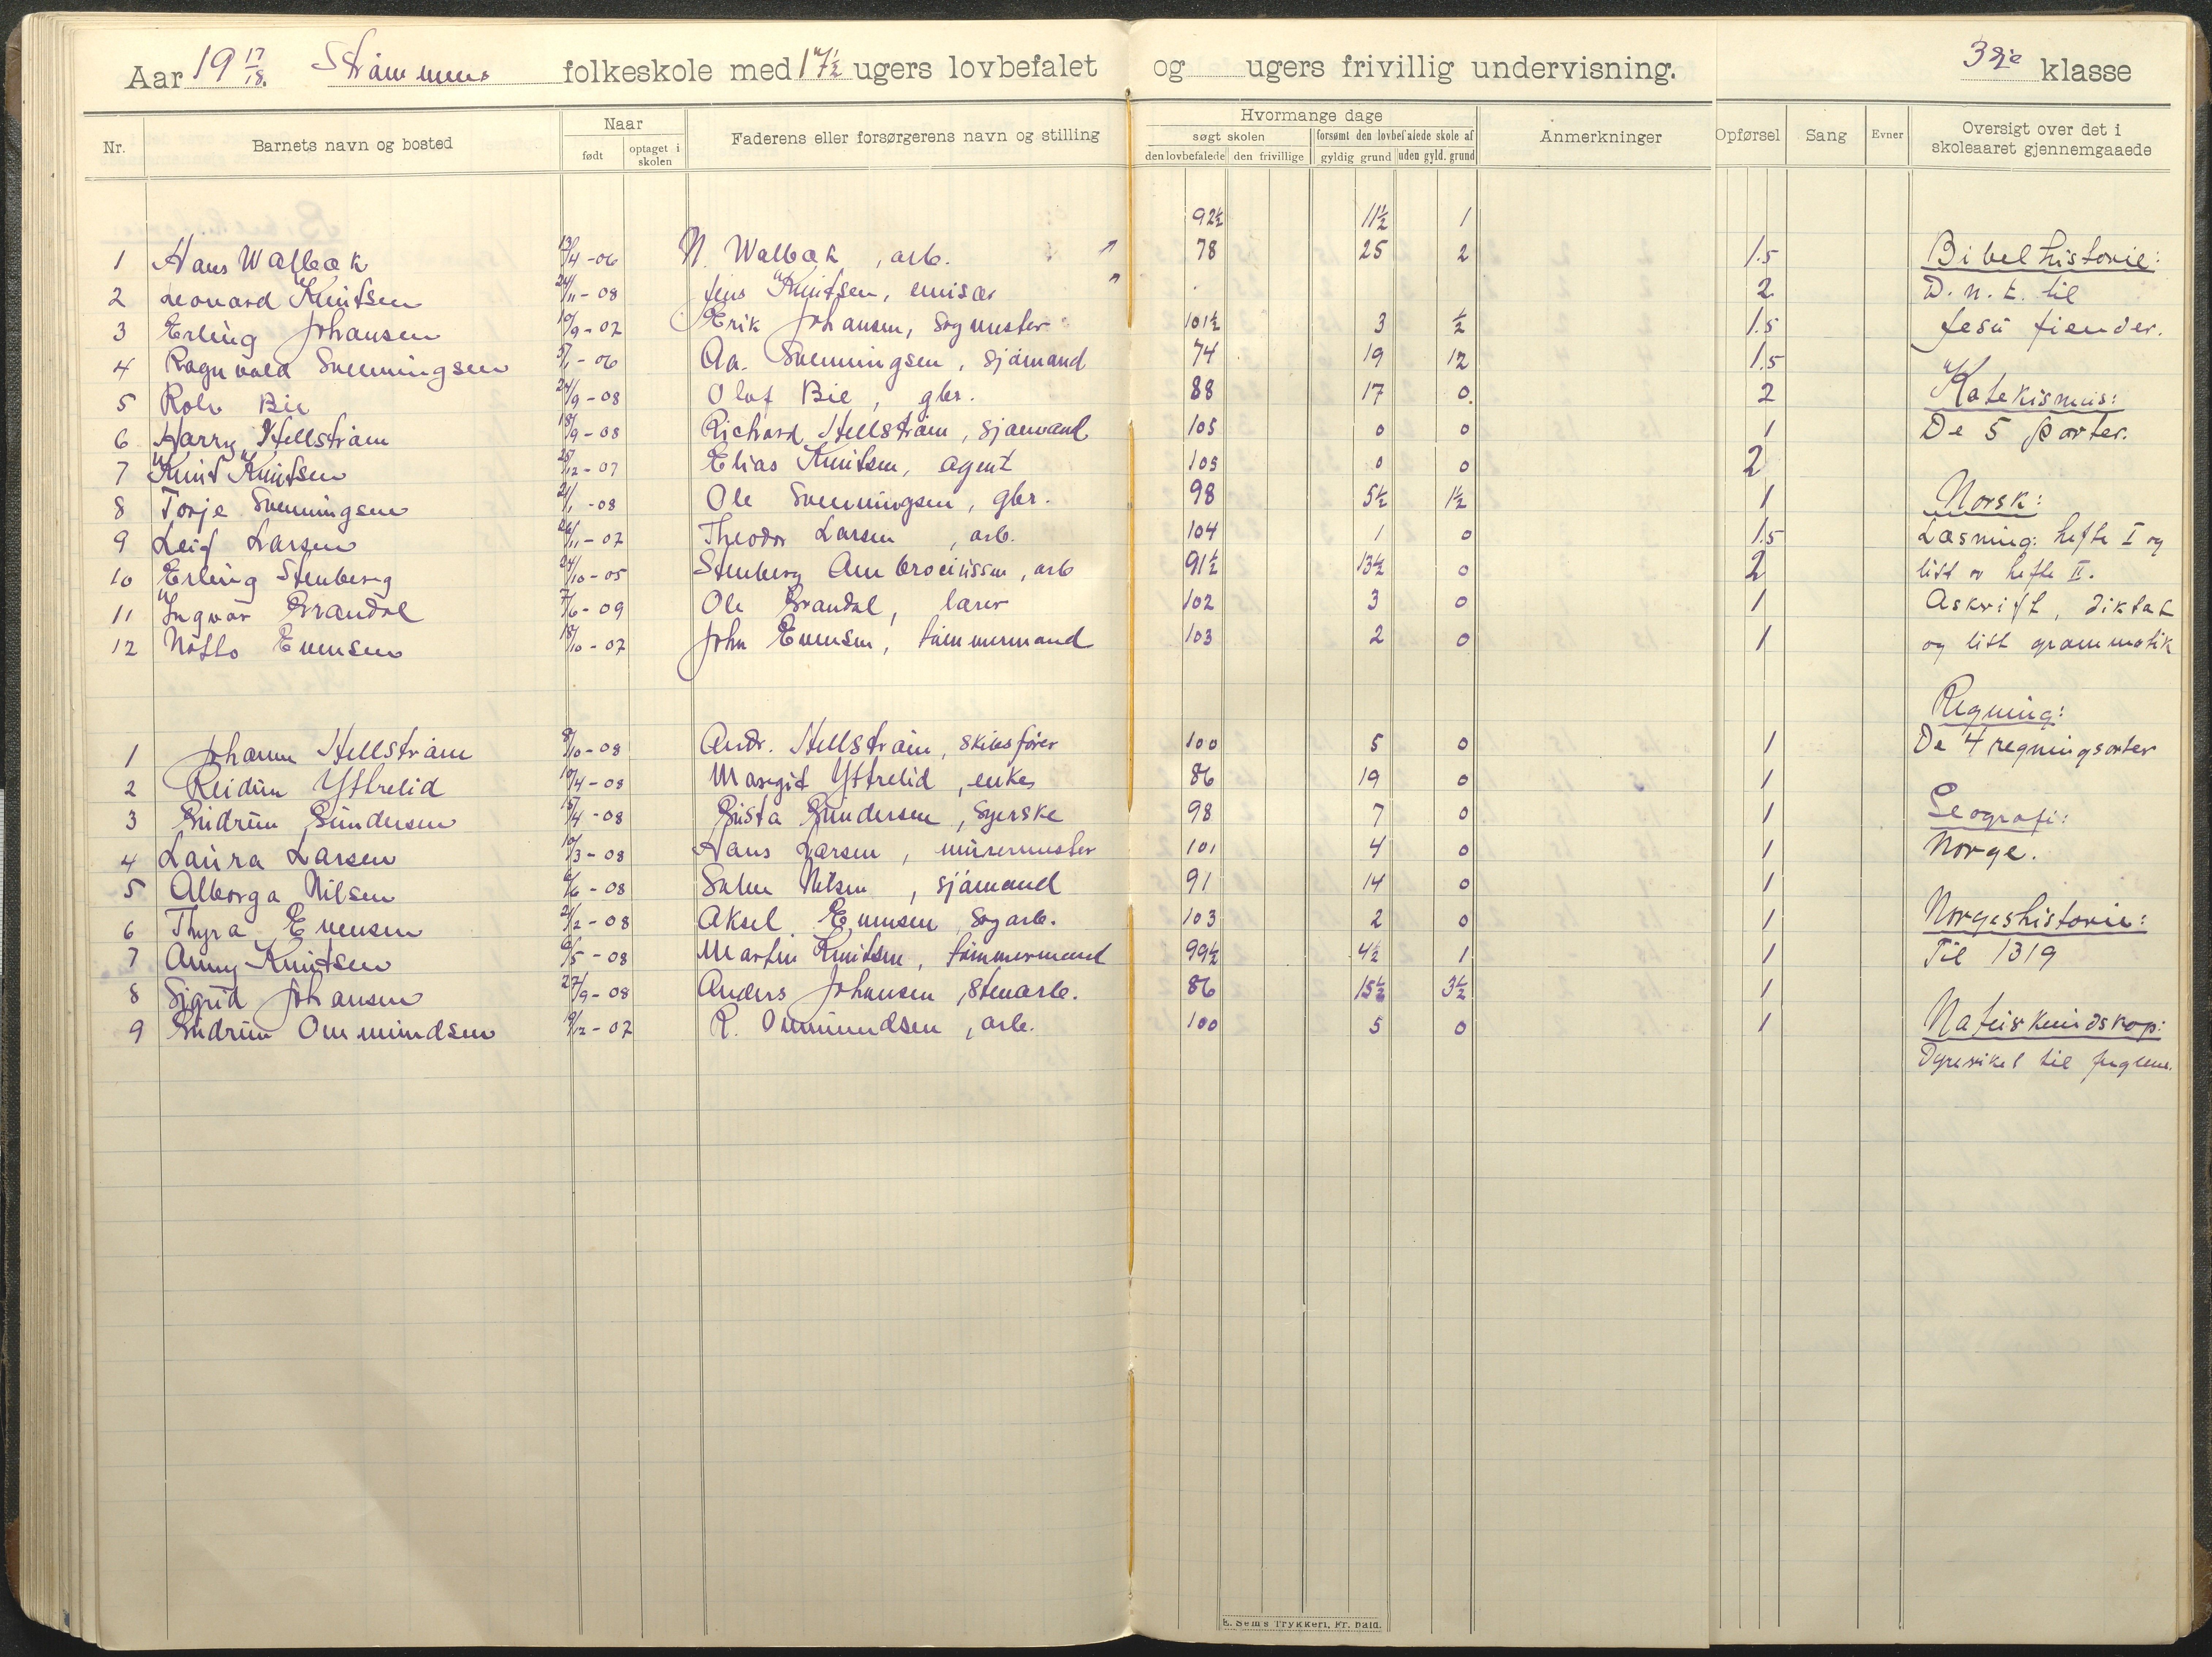 Aar 19 17/18. Strømmens folkeskole med 17½ ugers lovbefalet og ugers frivillig undervisning. 3dje klasse
Nr. Barnets navn og bosted Naar født optaget i skolen Faderens eller forsørgerens navn og stilling Hvormange dage søgt skolen den lovbefalede den frivillige forsømt den lovbefalede skole af gyldig grund uden gyld. grund Anmerkninger Opførsel Sang Evner Oversigt over det i skoleaaret gjennemgaaede
92½ 11½ 1
1 Hans Walbæk 13/4-06 N. Walbæk, arb. 78 25 2 1.5 Bibelhistorie:
2 Leonard Knutsen 24/11-08 Jens Knutsen, emisær 2 D. n. t. til
3 Erling Johansen 10/9-07 Erik Johansen, Sagmester 101½ 3 ½ 1.5 Jesu fiender.
4 Ragnvald Svenningsen 5/1-06 Aa. Svenningsen, sjømand 74 19 12 1.5
5 Rolv Bie 24/9-08 Olaf Bie, gbr. 88 17 0. 2 Katekismus:
6 Harry Hellstrøm 18/9-08 Richard Hellstrøm, sjømand 105 0 0 1 De 5 parter.
7 Knut Knutsen 25/12-07 Elias Knutsen, agent 105 0 0 2
8 Torje Svenningsen 21/1-08 Ole Svenningsen, gbr. 98 5½ 1½ 1 Norsk:
9 Leif Larsen 26/11-07 Theodor Larsen, arb. 104 1 0 1.5 Læsning: hefte I og
10 Erling Stenberg 24/10-05 Stenberg Ambrociussen, arb 91½ 13½ 0 2 litt av hefte II.
11 Ingvar Brandal 7/6-09 Ole Brandal, lærer 102 3 0 1 Avskrift, diktat
12 Notto Evensen 18/10-07 John Evensen, tømmermand 103 2 0 1 og litt grammatik
Regning:
1 Johanne Hellstrøm 8/10-08 Andr. Hellstrøm, skibsfører 100 5 0 1 De 4 regningsarter
2 Reidun Yttrelid 10/4-08 Margit Yttrelid, enke 86 19 0 1
3 Gudrun Gundersen 15/4-08 Gusta Gundersen, Syerske 98 7 0 1 Geografi:
4 Laura Larsen 10/3-08 Hans Larsen, murermester 101 4 0 1 Norge.
5 Alborga Nilsen 6/6-08 Salve Nilsen, sjømand 91 14 0 1
6 Thyra Evensen 21/2-08 Aksel Evensen, Sagarb. 103 2 0 1 Norgeshistorie:
7 Anny Knutsen 6/5-08 Martin Knutsen, tømmermand 99½ 4½ 1 1 Til 1319
8 Sigrid Johansen 27/9-08 Anders Johansen, Stenarb. 86 15½ 3½ 1
9 Gudrun Ommundsen 19/12-07 R. Ommundsen, arb. 100 5 0 1 Naturkundskap:
Dyreriket til fuglene.
E. Sem's Trykkeri, Fr.hald.